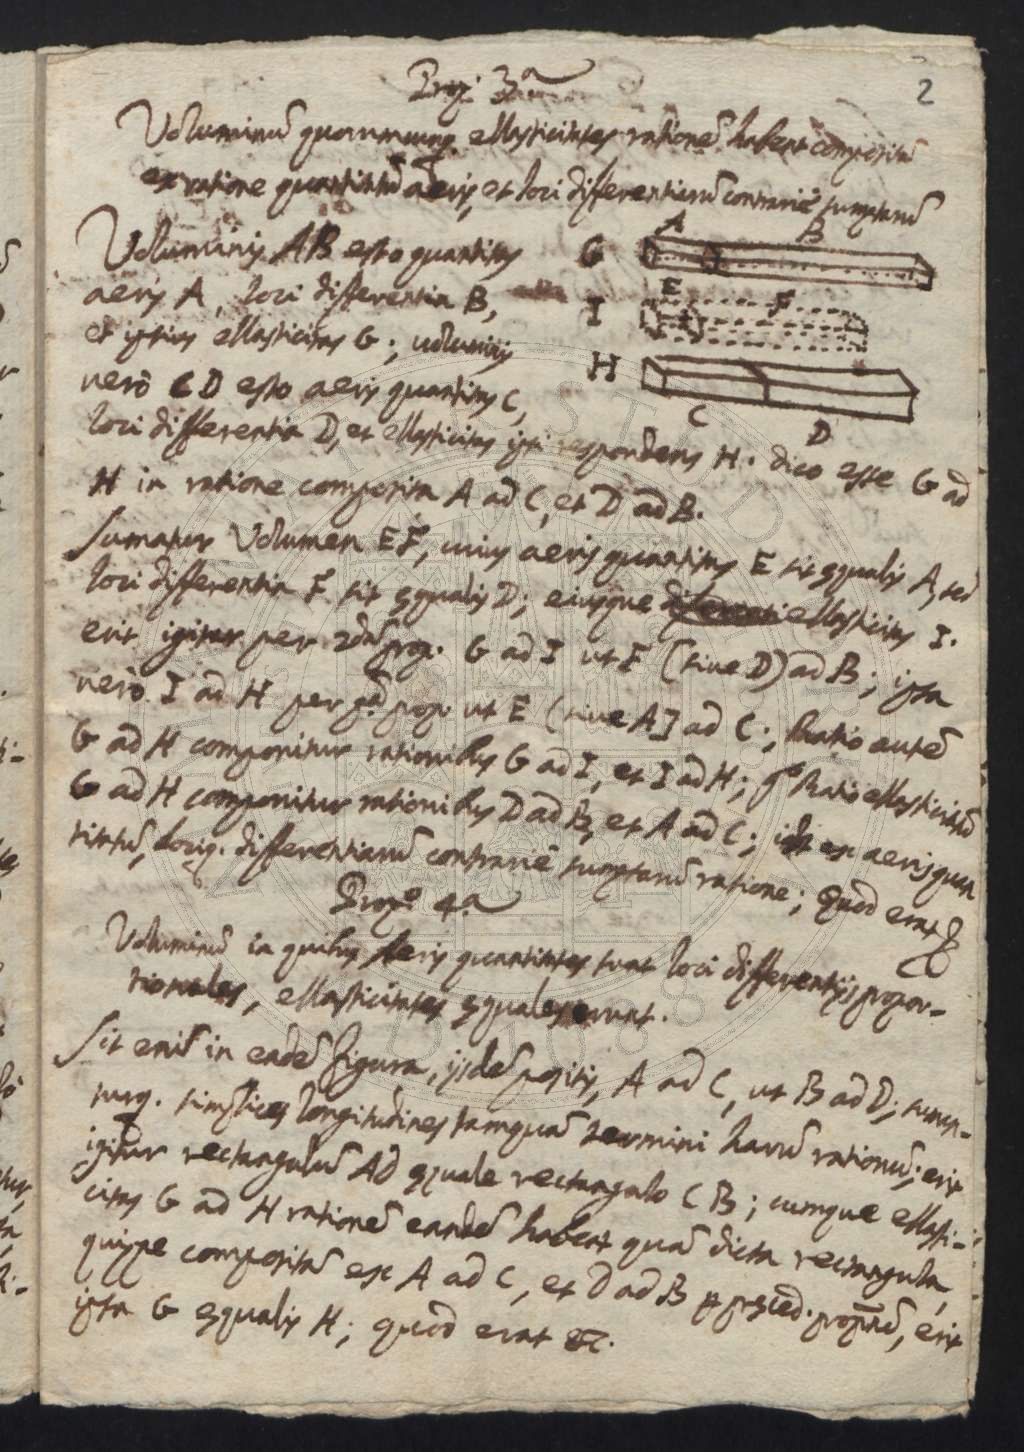 2
Prop. 3ª
Voluminũ quorumcunq. ellasticitates rationẽ habent compositã
ex ratione quantitatũ aeris, et loci differentiarũ contrariè sumptarũ
Voluminis AB esto quantitas
aeris A, loci differentia B,
et ipsius ellasticitas G; voluminis
verò CD esto aeris quantitas C,
loci differentia D, et ellasticitas ipsi respondens H. dico esse G ad
H in ratione composita A ad C, et D ad B.
A B
G
E F
I
H
C D
Sumatur Volumen EF, cuius aeris quantitas E sit ęqualis A, sed
loci differentia F sit ęqualis D; eiusque ellasticitas I.
erit igitur per 2dã prop. G ad I ut F (sive D) ad B; ipsa
verò I ad H per pã prop. ut E (sive A) ad C; Ratio autẽ
G ad H componitur rationibus G ad I, et I ad H; gº Ratio ellasticitatũ
G ad H componitur rationibus D ad B, et A ad C; idest ex aeris quan
titatũ, lociq. differentiarũ contrariè sumptarũ ratione; Quod erat &
Propº 4ª
Voluminũ in quibus Aeris quantitates sunt loci differentijs propor-
tionales, ellasticitates ęquales erunt.
Sit enim in eadẽ figura, ijsdẽ positis, A ad C, ut B ad D; suman-
turq. simplices longitudines tamquã termini harũ rationũ; erit
igitur rectangulũ AD ęquale rectangulo CB; cumque ellasti-
citas G ad H rationẽ eandẽ habeat quã dicta rectangula,
quippe compositã ex A ad C, et D ad B p pręced. propnẽ, erit
ipsa G ęqualis H; quod erat &c.